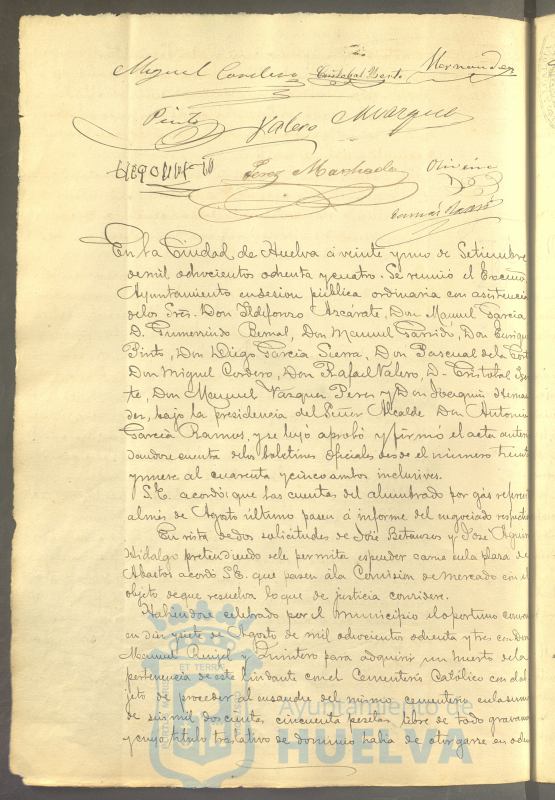 Miguel Cordero Cristobal Iso te Hernandez
Pinto Valero Marquez
Perez Machado Oliveira
Tomás
En la Ciudad de Huelva á veinte y uno de Setiembre
de mil ochocientos ochenta y cuatro. Se reunió el Excmo
Ayuntamiento en sesion pública ordinaria con asistencia
de los Sres. Don Ildefonso Azcarate, Don Manuel Garcia
D. Gumersindo Bernal, Don Manuel Garrido, Don Enrique
Pinto, Don Diego Garcia Sierra, Don Pascual de la Corte
Don Miguel Cordero, Don Rafael Valero, D. Cristobal
te, Don Manuel Vazquez Perez y Don Joaquin Hernan
dez, bajo la presidencia del Señor Alcalde Don Antonio
Garcia Ramos, y se leyó aprobó y firmó el acta anter
dandose cuenta de los boletines oficiales desde el número treinta
y nueve al cuarenta y cinco ambos inclusives.
S.E. acordó que las cuentas del alumbrado por gás referen
al mes de Agosto último pasen á informe del negociado respectivo
En vista de dos solicitudes de José Betanzos y José
Hidalgo pretendiendo se le permita expender carne en la plaza de
Abastos acordó S.E. que pasen á la Comision de Mercado con el
objeto de que resuelva lo que de justicia considere.
Habiendose celebrado por el Municipio el oportuno conven
en dia siete de Agosto de mil ochocientos ochenta y tres con Don
Manuel y Quintero para adquirir un huerto de la
pertenencia de este lindante con el Cementerio Católico con el ob
jeto de proceder al ensanche del mismo cementerio en la suma
de seis mil doscientas cincuenta pesetas libre de todo gravamen
y cuyo título traslativo de dominio habia de otorgarse en
ET TERRA
Ayuntamiento de
HUELVA